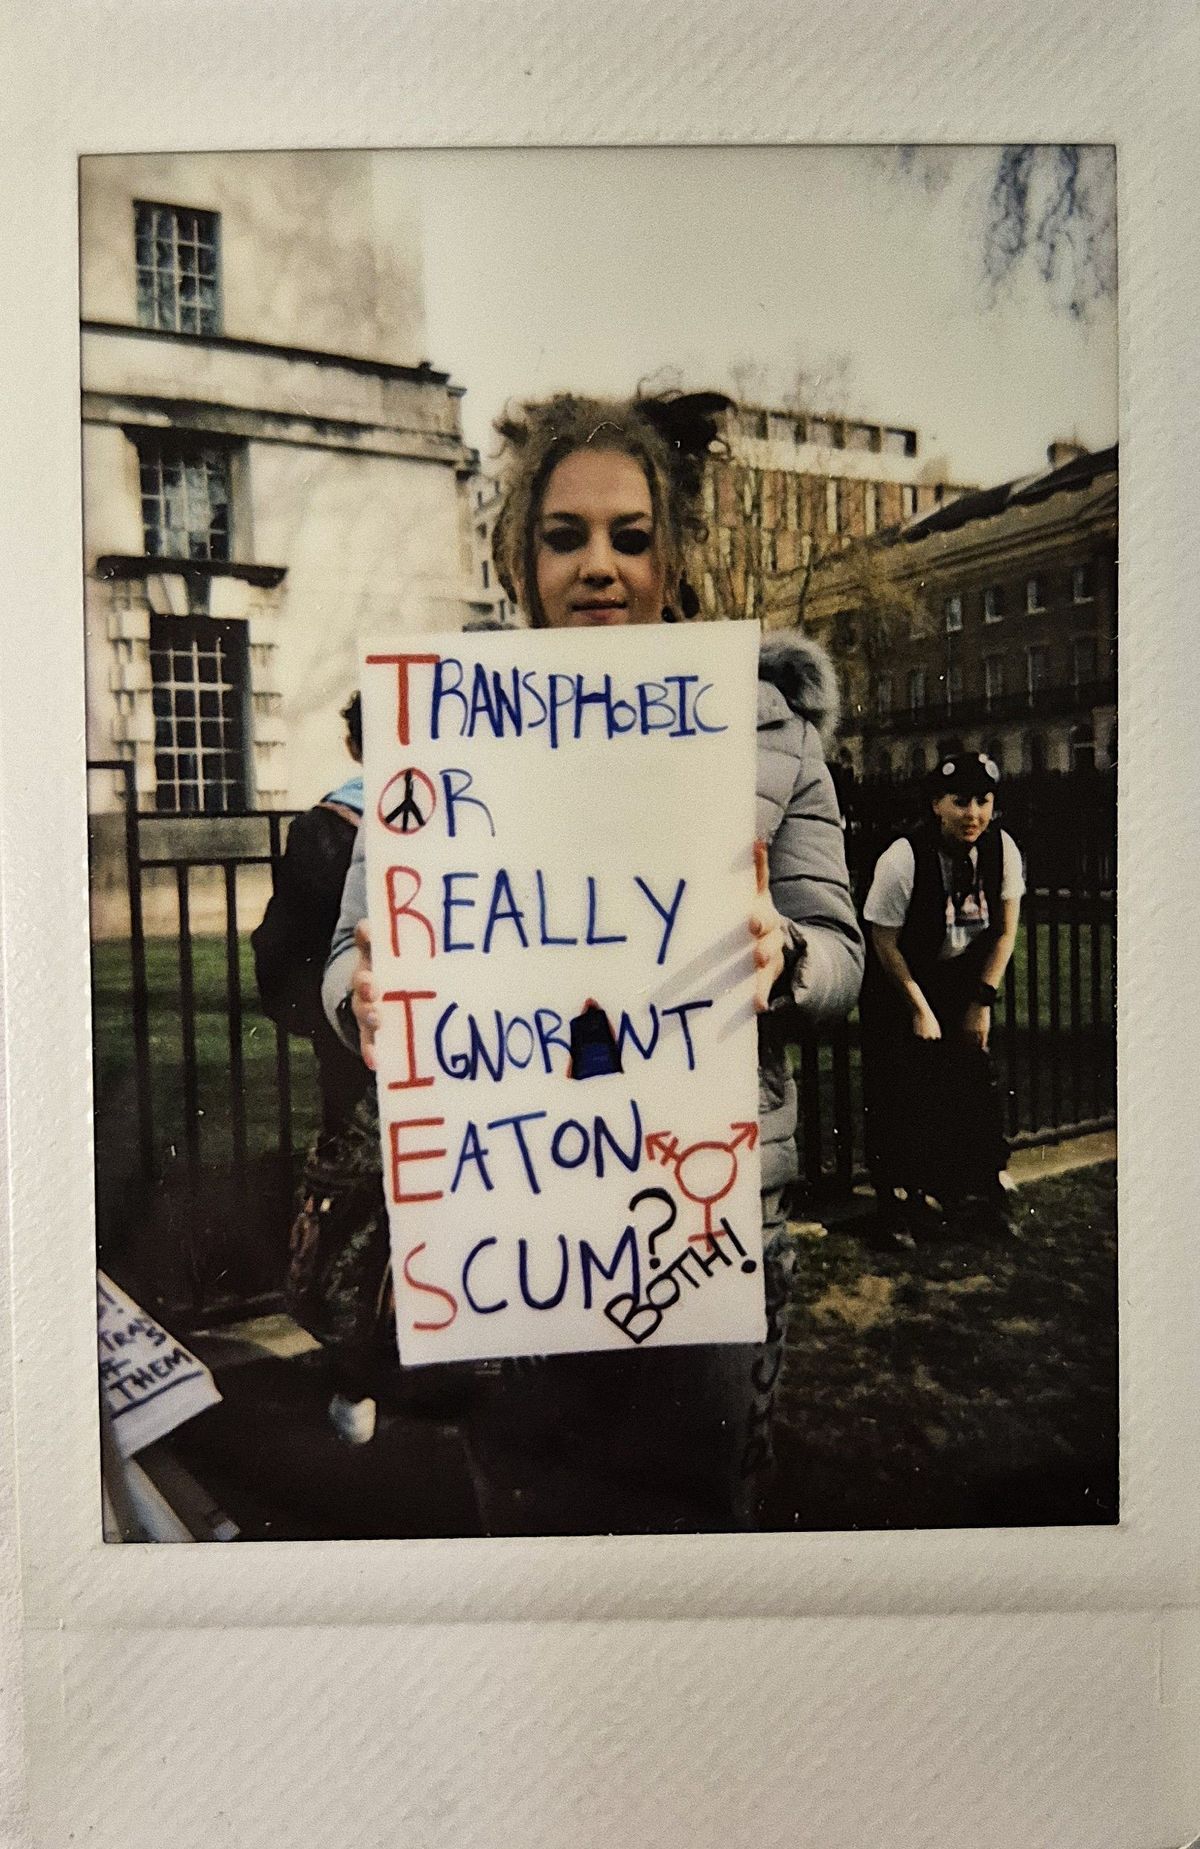 TRANSPHOBIC
OR
REALLY
IGNORANT
EATON
SCUM?
BOTH!
TRANS
THEM